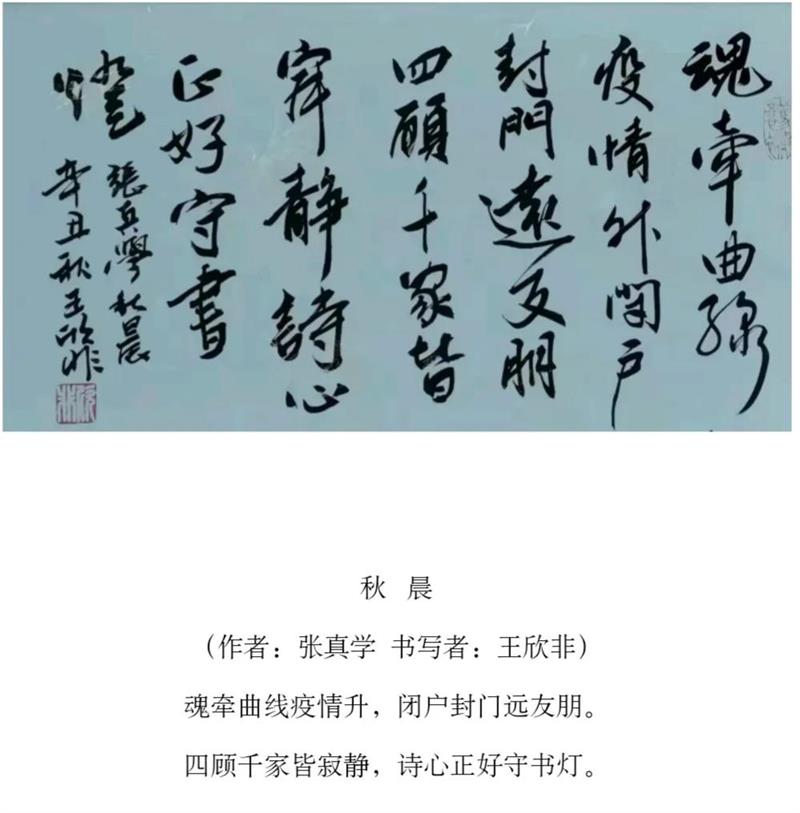 魂牽曲線
疫情升閉戶
封門遠友朋
四顧千家皆
寂靜詩心
正好守書
燈
張真學秋晨
辛丑秋王欣非
秋 晨
（作者：张真学 书写者：王欣非）
魂牵曲线疫情升，闭户封门远友朋。
四顾千家皆寂静，诗心正好守书灯。